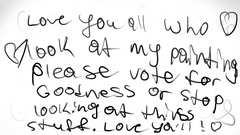 Love you all who
look at my painting
please vote for
Goodness or stop
looking at things
stuff. Love you!!!